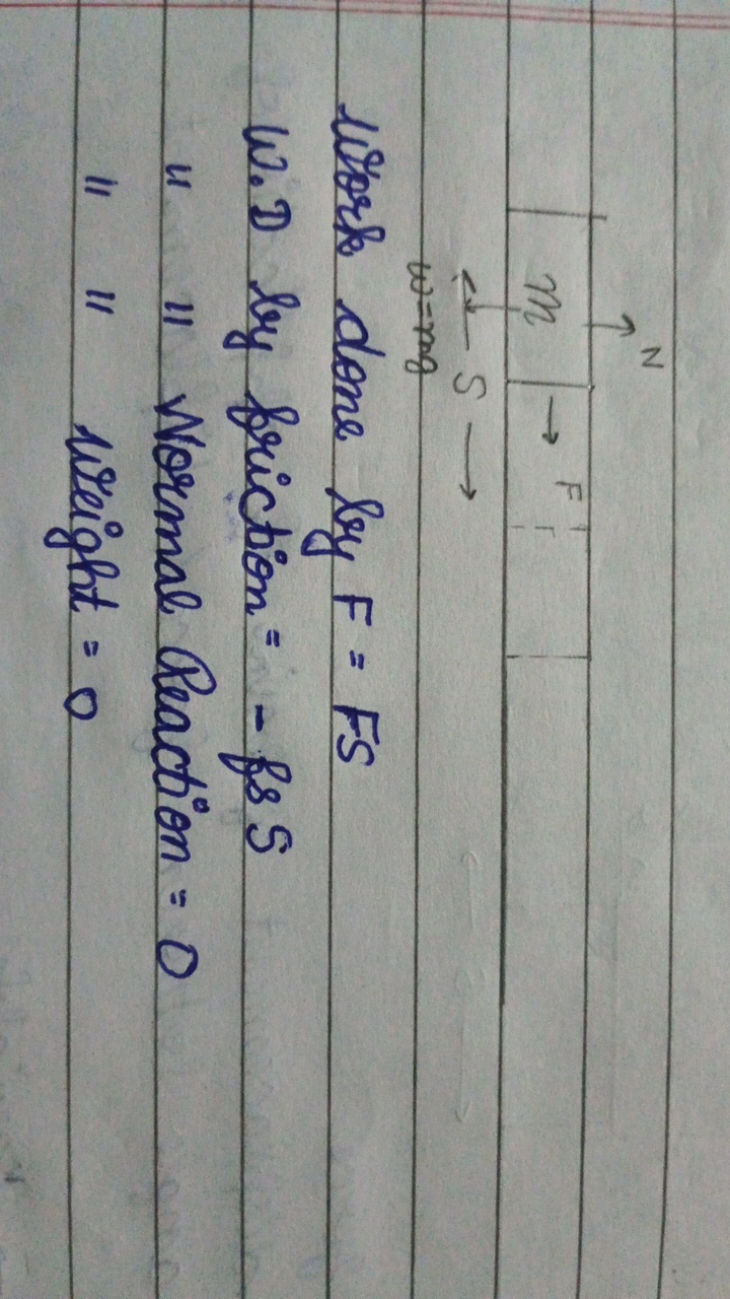 N
m → F
← S →
W=mg
Work done by F = FS
W.D by friction = - fs S
" " Normal Reaction = 0
" " Weight = 0